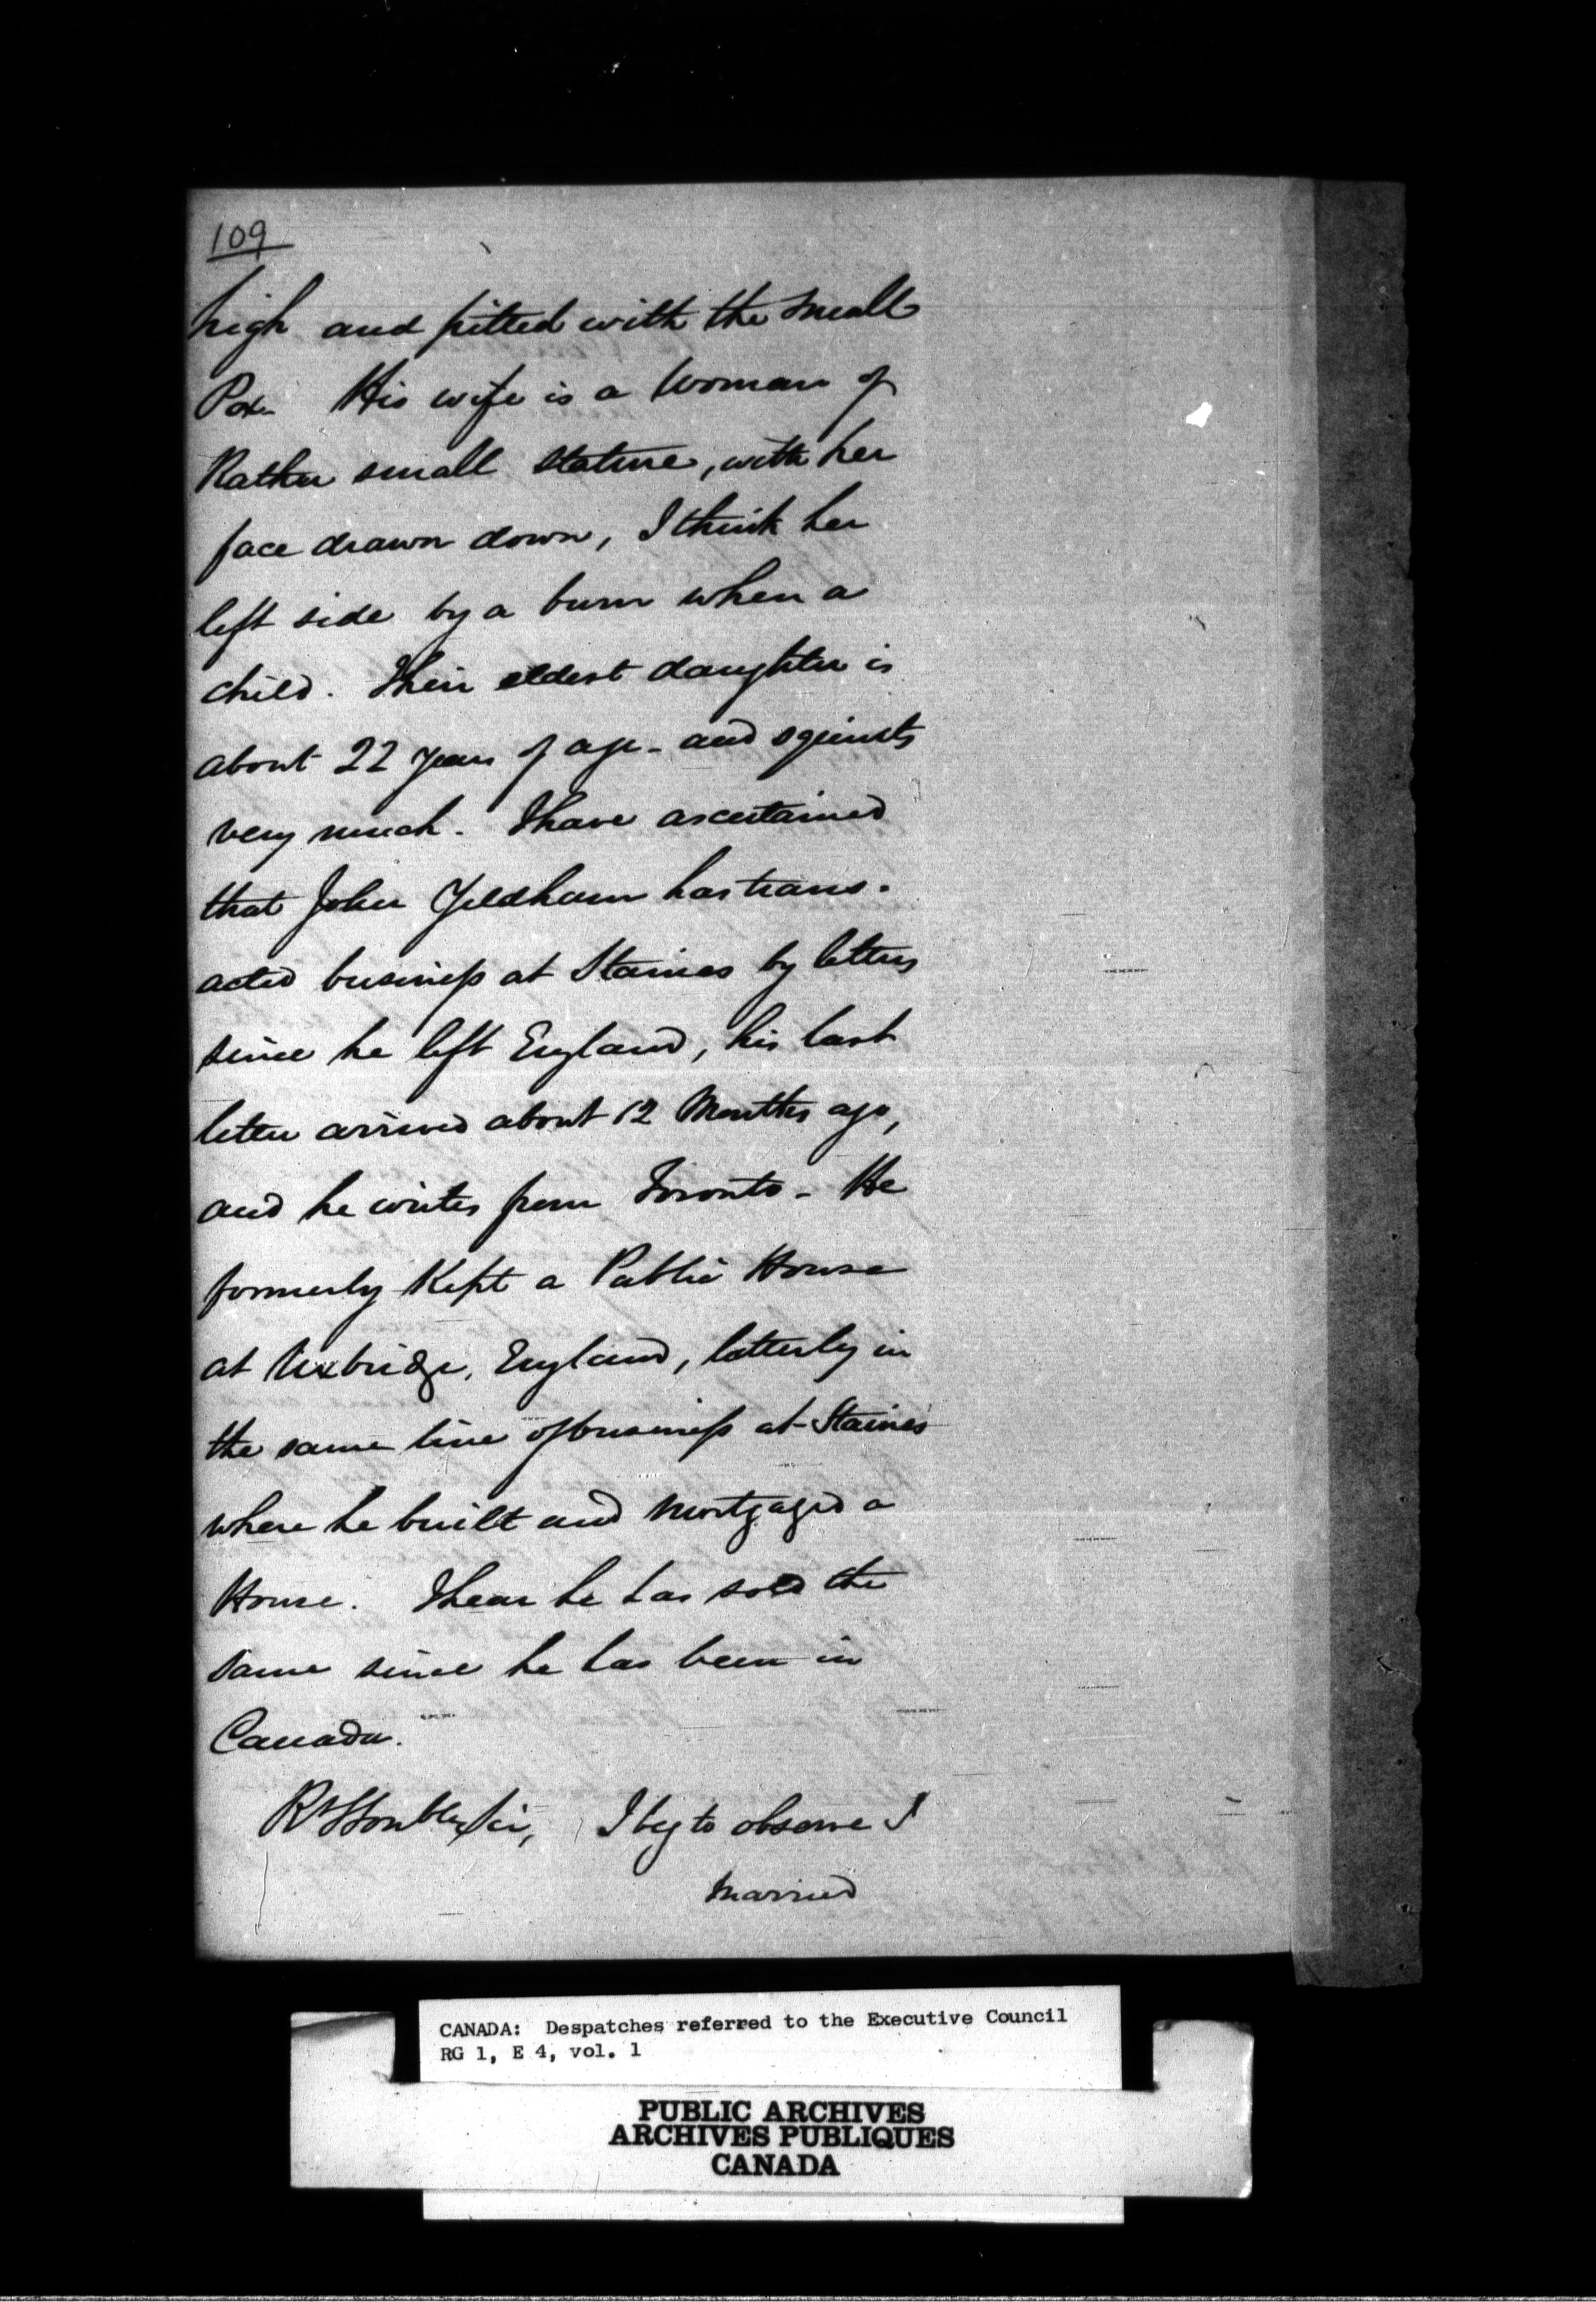 109
high and pitted with the small
Pox. His wife is a Woman of
Rather small stature, with her
face drawn down, I think her
left side by a burn when a
child. Their eldest daughter is
about 22 years of age - and squints
very much. I have ascertained
that John Yeldham has trans-
acted business at Staines by letters
since he left England, his last
letter arrived about 12 Months ago,
and he writes from Toronto - He
formerly Kept a Public House
at Uxbridge, England, latterly in
the same line of business at Staines
where he built and mortgaged a
House. I hear he has sold the
same since he has been in
Canada.
Rt Honble Sir, I beg to observe I
married
CANADA: Despatches referred to the Executive Council
RG 1, E 4, vol. 1
PUBLIC ARCHIVES
ARCHIVES PUBLIQUES
CANADA